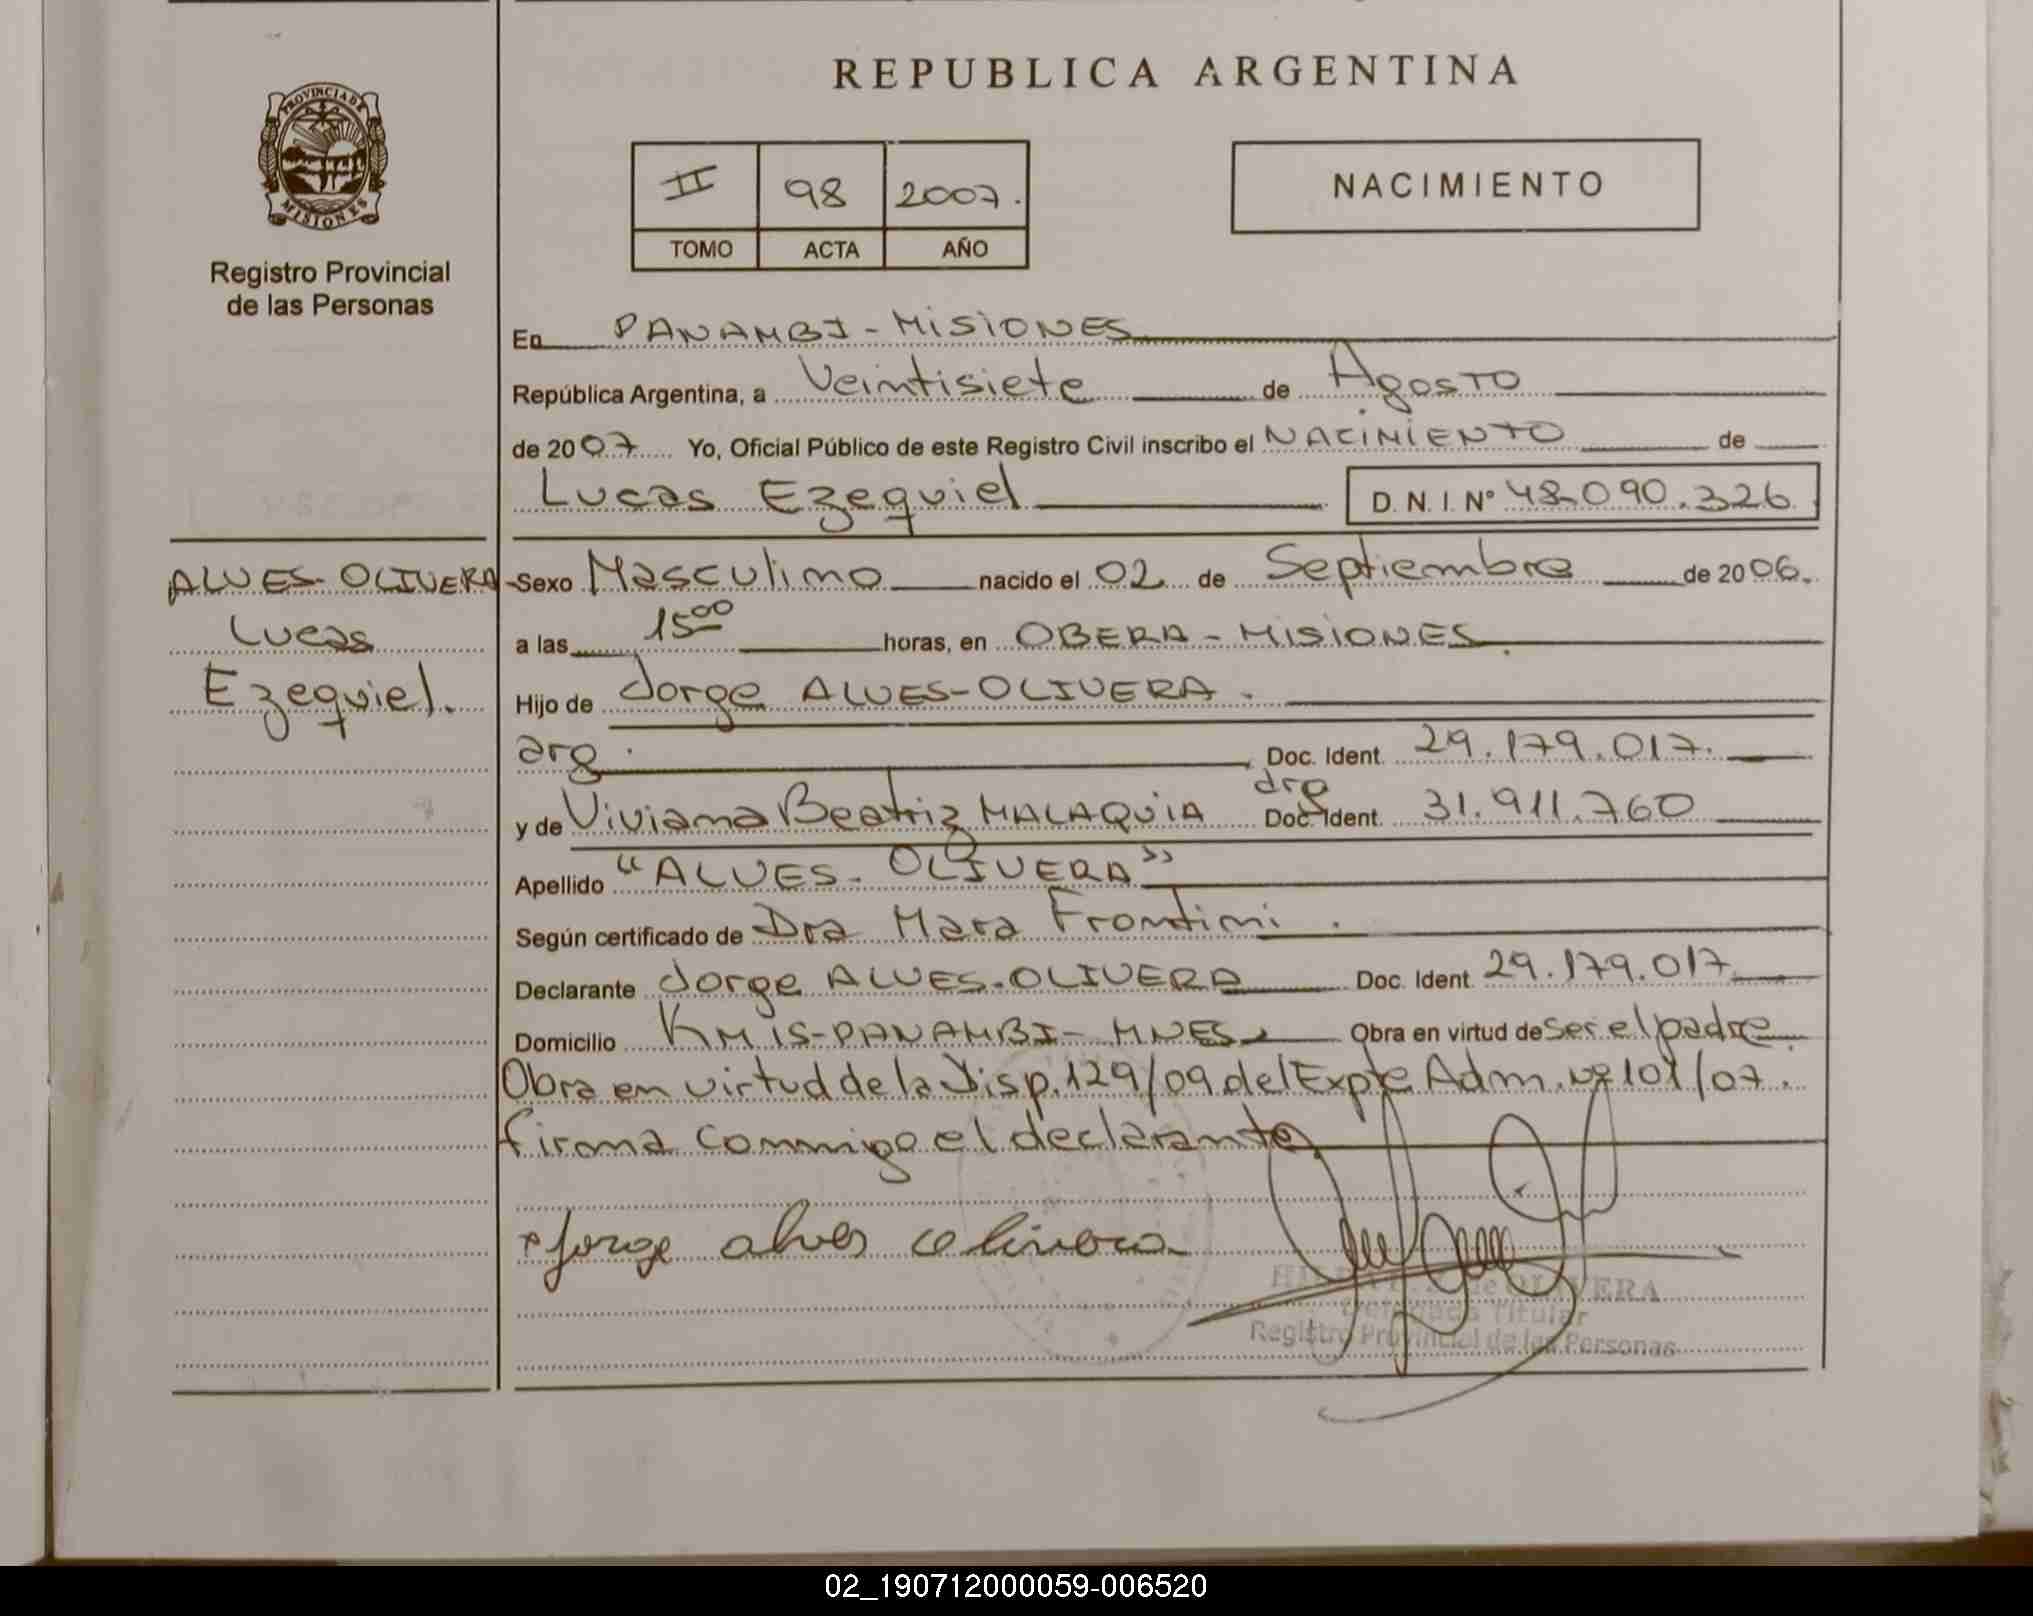 REPUBLICA ARGENTINA
PROVINCIA DE
MISIONES
Registro Provincial
de las Personas
II 98 2007.
TOMO ACTA AÑO
NACIMIENTO
En PANAMBI - MISIONES
República Argentina, a Veintisiete de Agosto
de 2007 Yo, Oficial Público de este Registro Civil inscribo el NACIMIENTO de
Lucas Ezequiel D. N. I. N° 48.090.326
ALVES-OLIVERA
Lucas
Ezequiel.
Sexo Masculino nacido el 02 de Septiembre de 2006.
a las 15 00 horas, en OBERA - MISIONES
Hijo de Jorge ALVES-OLIVERA.
arg. Doc. Ident. 29.179.017.
arg
y de Viviana Beatriz MALAQUIA Doc. Ident. 31.911.760
Apellido "ALVES-OLIVERA"
Según certificado de Dra Mara Frontini.
Declarante Jorge ALVES-OLIVERA Doc. Ident. 29.179.017
Domicilio KM 15-PANAMBI-MNES Obra en virtud de ser el padre.
Obra en virtud de la Disp. 129/09 del Expte Adm. Nº 101/07.
firma conmigo el declarante
Jorge alves olivera
de OLIVERA
Delegada Titular
Registro Provincial de las Personas
02_190712000059-006520